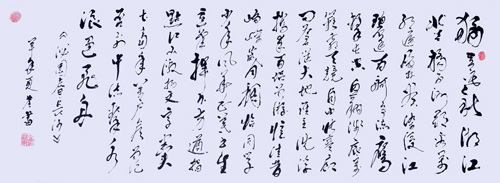 独立寒秋湘江
北去橘子洲头看万
山红遍层林尽染漫江
碧透百舸争流鹰
击长空鱼翔浅底万
类霜天竞自由怅寥廓
问苍茫大地谁主沉浮
携来百侣曾游忆往昔
峥嵘岁月稠恰同学
少年风华正茂书生
意气挥斥方遒指
点江山激扬文字粪土
当年万户侯曾记
否到中流击水
浪遏飞舟
《沁园春长沙》